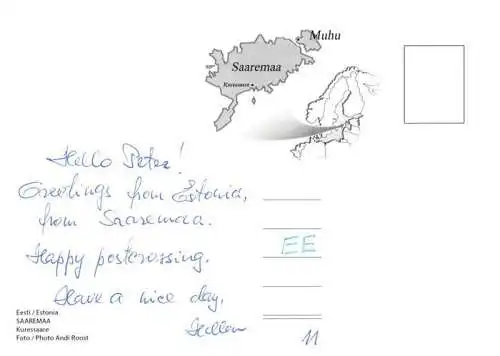 Muhu
Saaremaa
Kuressaare
Hello Peter!
Greetings from Estonia,
from Saaremaa.
Happy postcrossing.
Have a nice day,
EE
11
Eesti / Estonia
SAAREMAA
Kuressaare
Foto / Photo Andi Roost